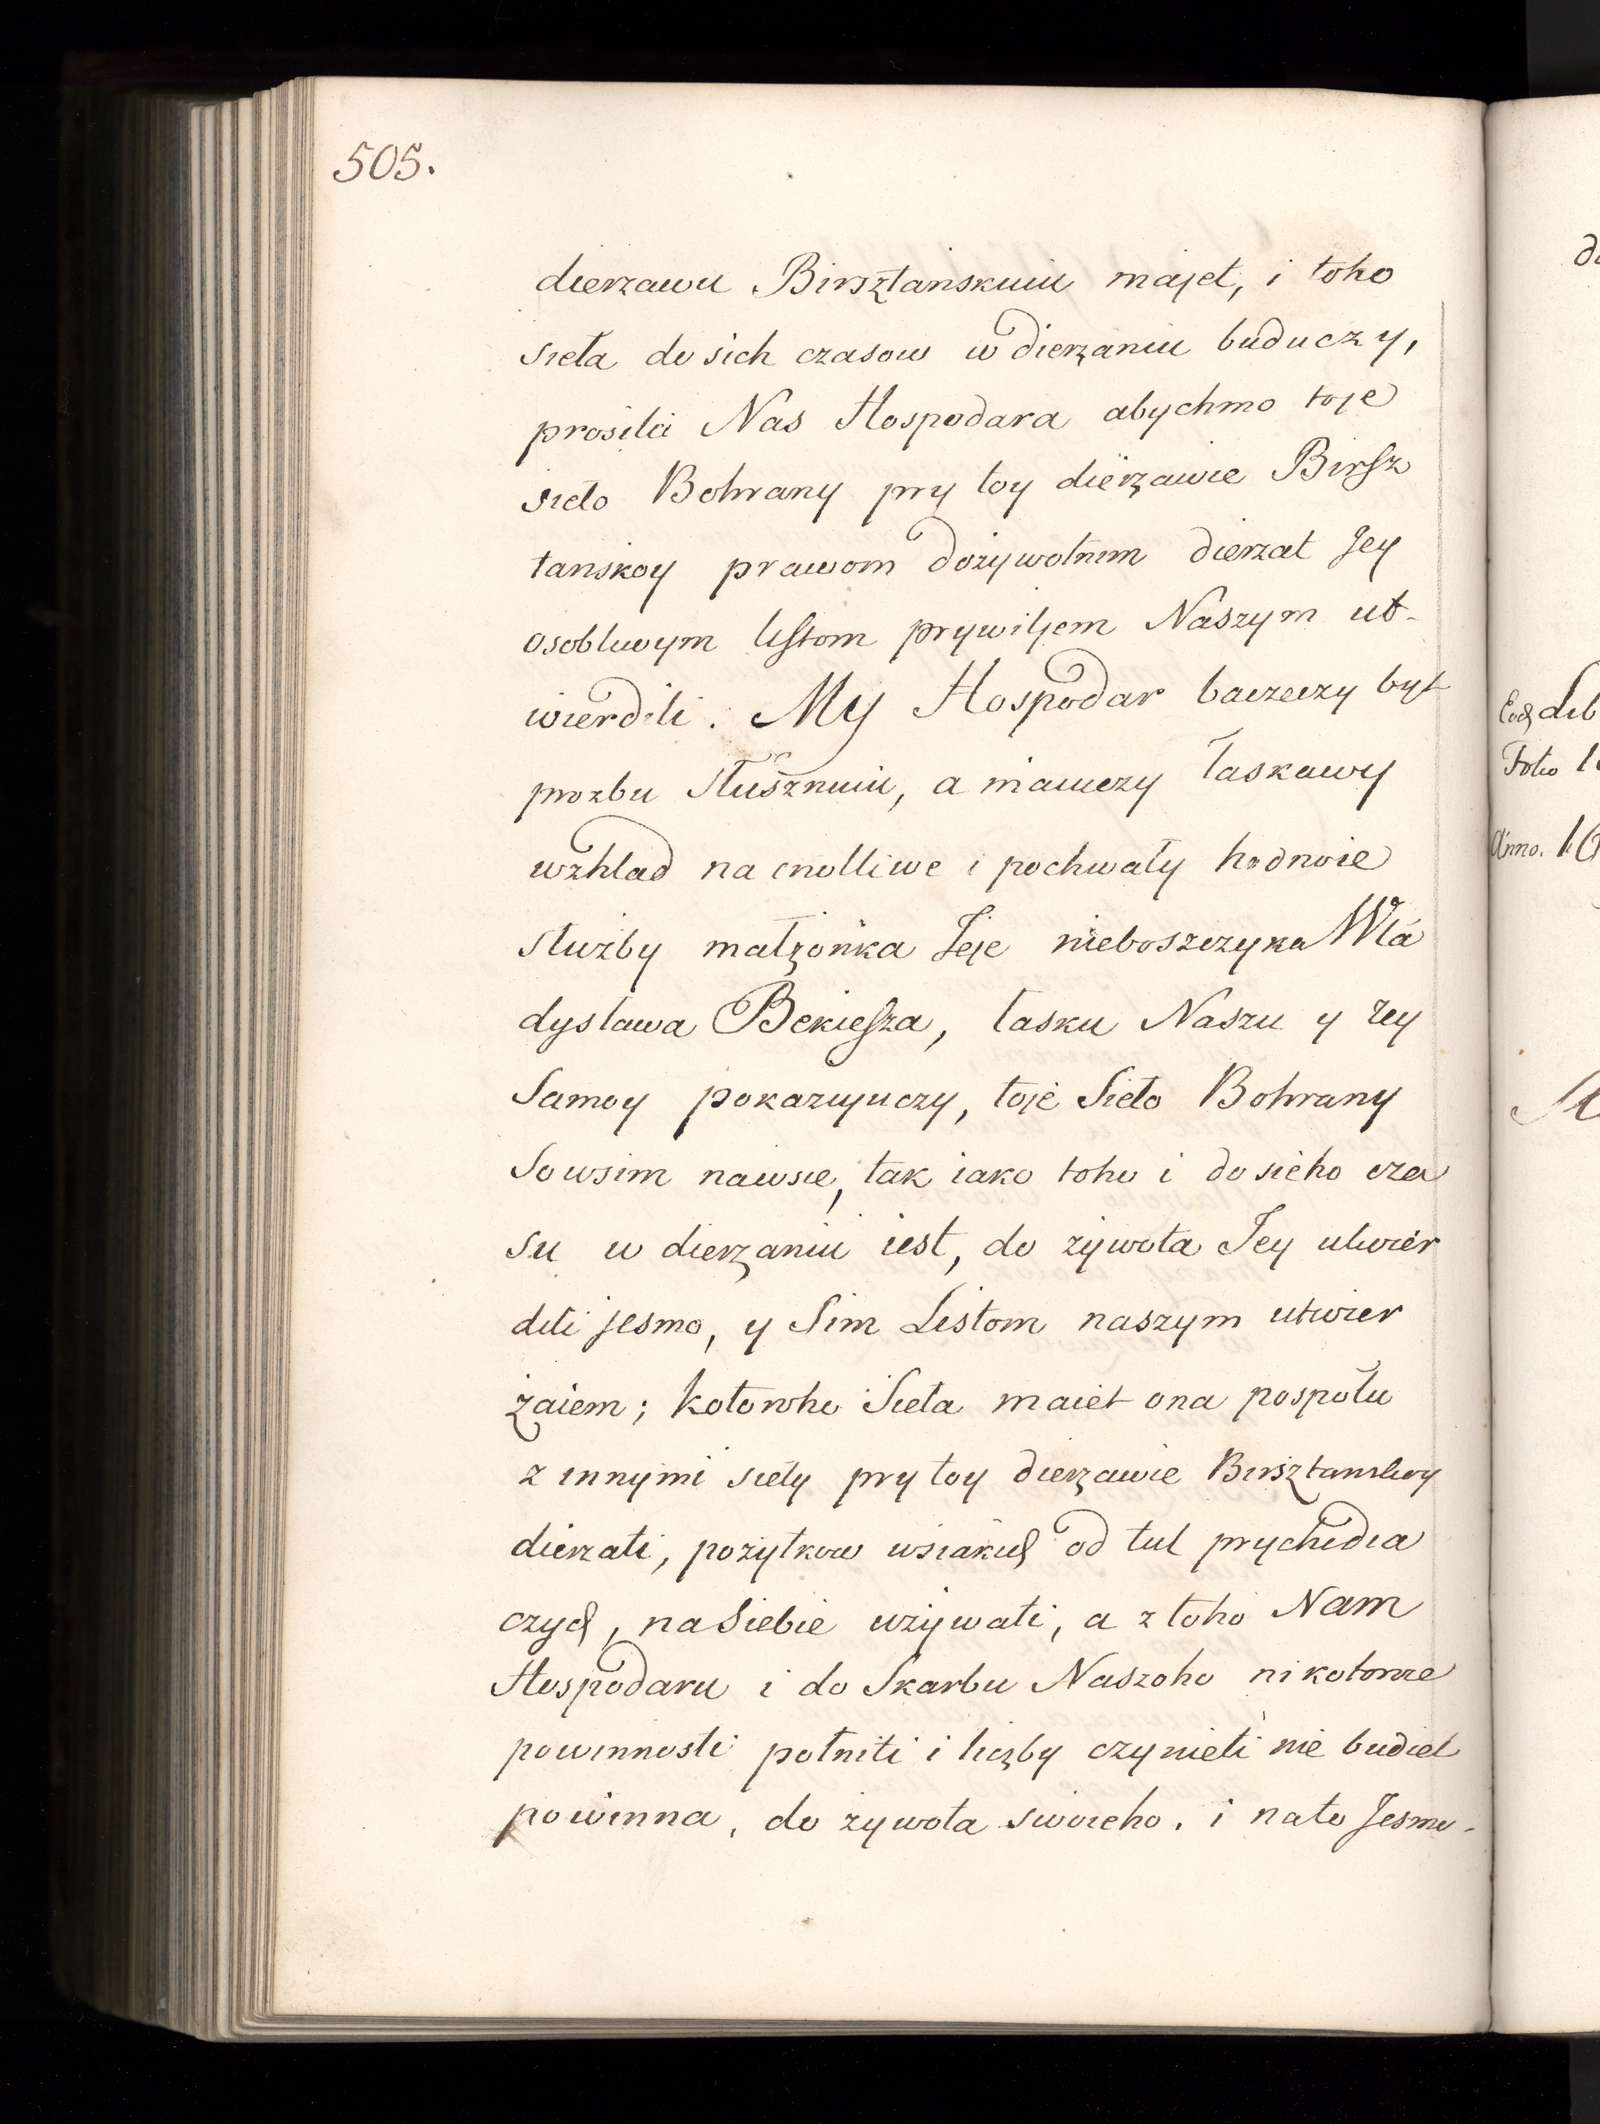 505.
dierzawu Birsztanskuiu majet, i toho
sieła do sich czasow w dierżaniu buduczy,
prosiła Nas Hospodara abychmo toje
sieło Bohrany pry toy dierżawie Birsz
tanskoy prawom dożywotnim dierzat Jey
osobliwym listom prywiljem Naszym ut-
wierdili. My Hospodar baczeczy byt
prozbu słusznuiu, a maiuczy łaskawy
wzhlad na cnotliwe i pochwały hodnoie
służby małżonka Jeje nieboszczyka Wła
dysława Bekiesza, łasku Naszu y Jey
Samoy pokazujuczy, toje Sieło Bohrany
So wsim nawsie, tak iako toho i do sieho cza
su w dierżaniu iest, do żywota Jey utwier
dili jesmo, y Sim Listom naszym utwier
żaiem; kotoroho Sieła maiet ona pospołu
z innymi sieły pry toy dierżawie Birsztanskoy
dierzati, pożytkow wsiakich od tul prychodia
czych, na Siebie używati, a z toho Nam
Hospodaru i do Skarbu Naszoho ni kotoroie
powinnosti połniti i liczby czynieti nie budiet
powinna, do żywota swoieho. i nato Jesmo-
da
Lib
Folio 1
Anno. 16